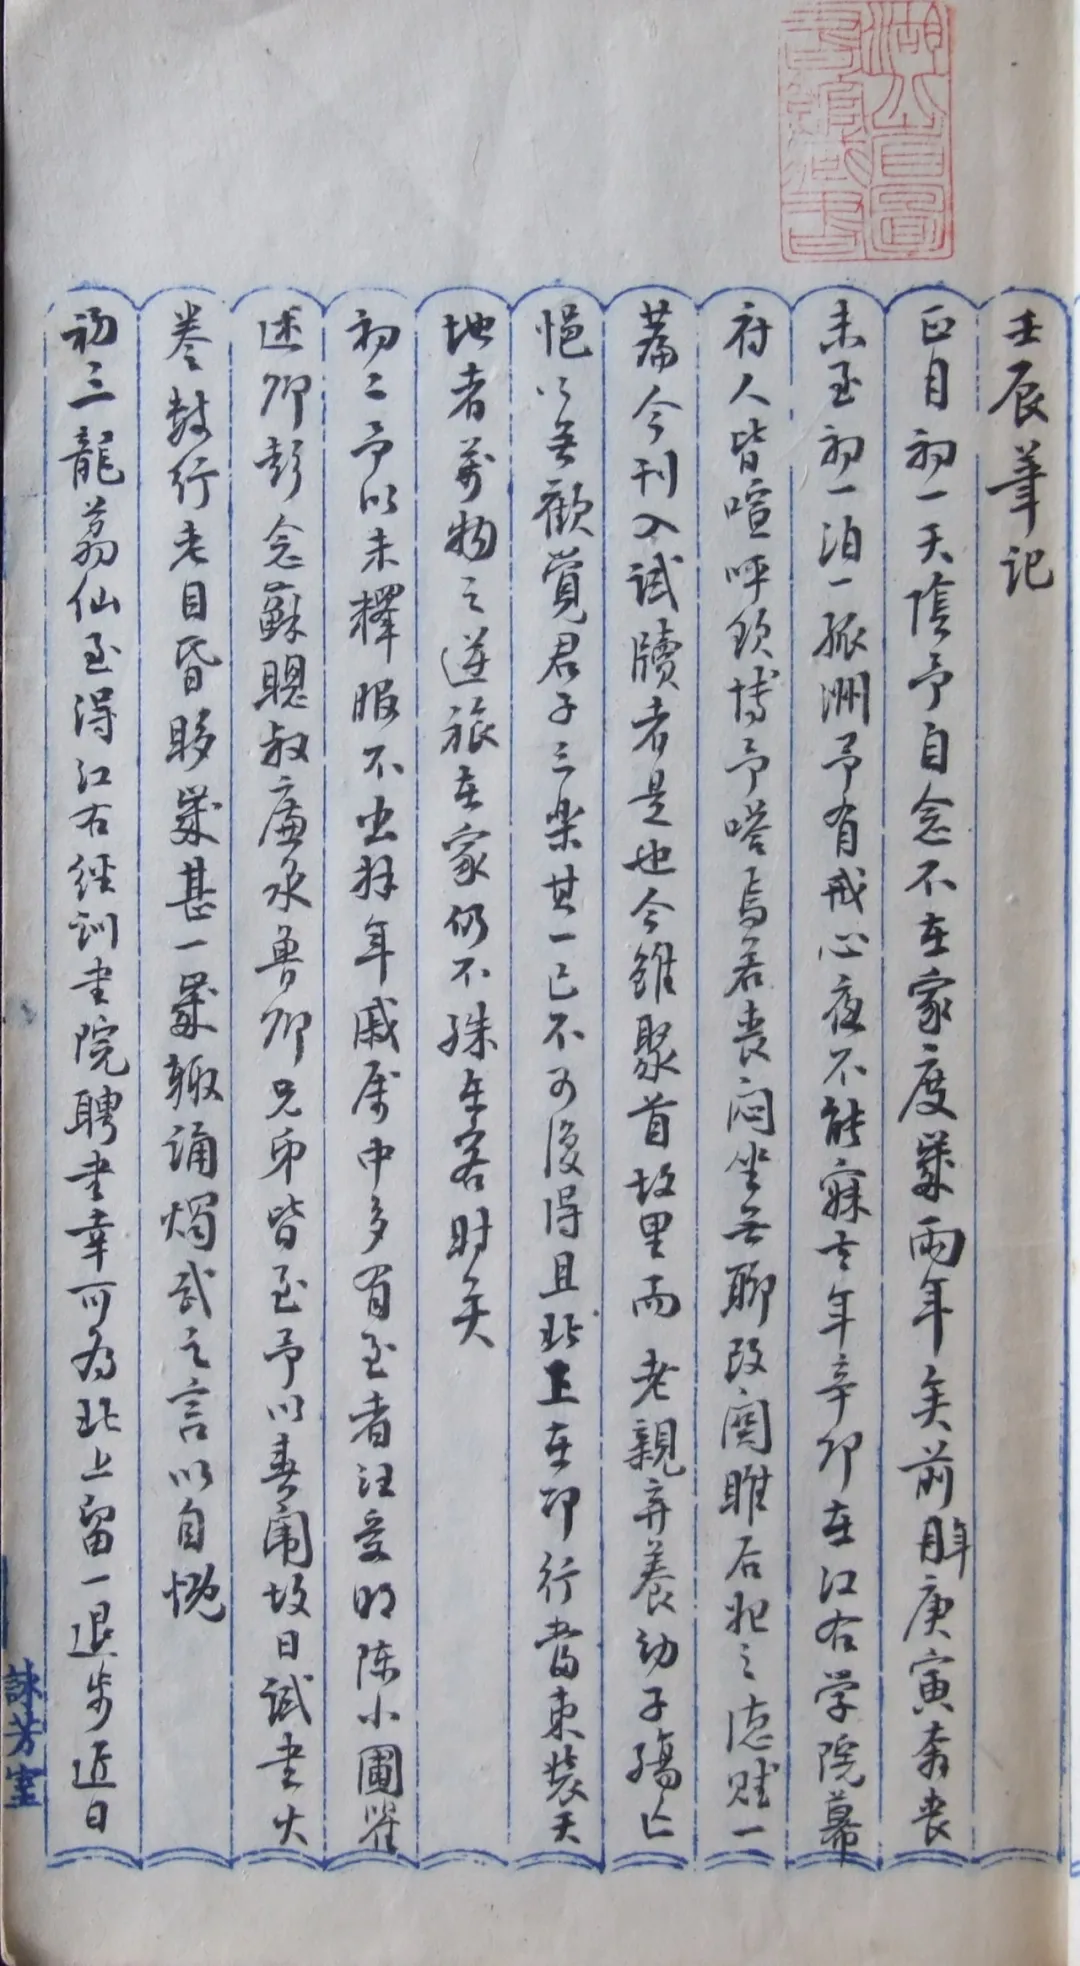 湖南省圖
書館藏書
壬辰筆記
正月初一天陰予自念不在家度歲兩年矣前年庚寅奔喪
未至初一泊一孤洲予有戒心夜不能寐去年辛卯在江右学院幕
府人皆喧呼飲博予嗒焉若喪悶坐無聊改關雎后妃之德賦一
篇今刊入試牘者是也今雖聚首故里而老親弃養幼子殤亡
悒悒無歡覺君子三樂其一已不可復得且北上在即行當束裝天
地者萬物之逆旅在家仍不殊在客时矣
初二予以未釋服不出拜年戚屬中多有至者汪受明陈小圃瞿
述卿彭念蘇聰叔廉泉魯卿兄弟皆至予以春闈故日試書大
卷數行老目昏眵嵗甚一嵗輙誦燭武之言以自慨
初三龍荔仙至得江右經訓書院聘書幸可為北上留一退步近日
詠芳室